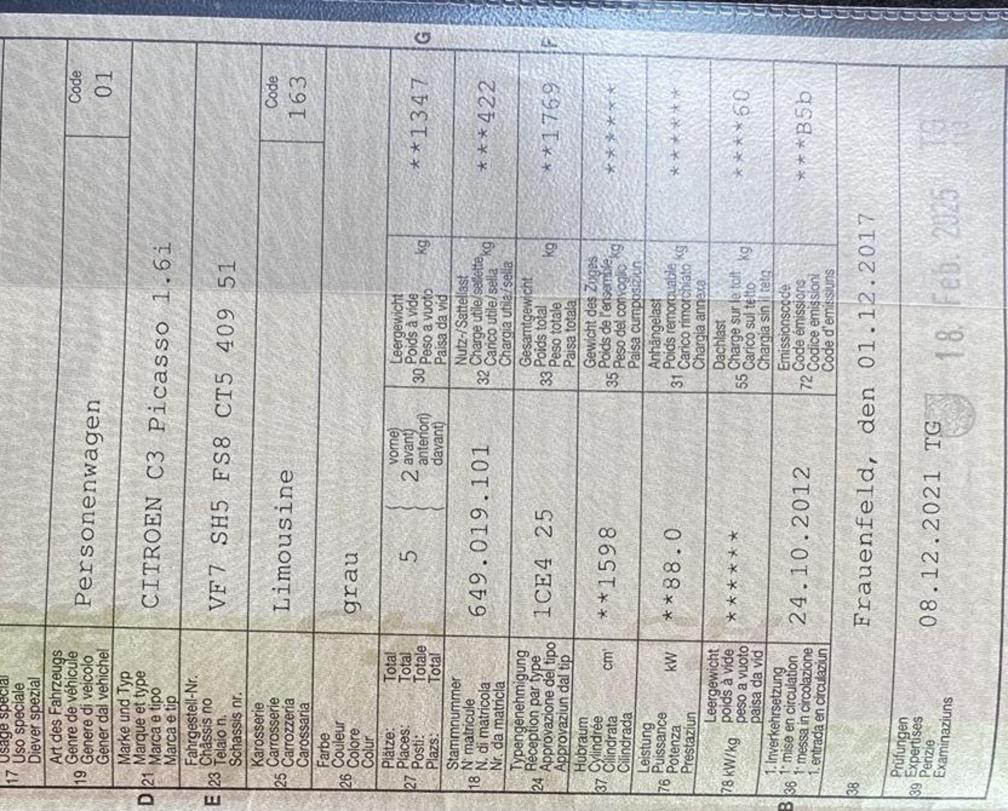 17 Usage spécial
Uso speciale
Diever spezial
Art des Fahrzeugs
19 Genre de véhicule
Genere di veicolo
Gener dal vehichel
Personenwagen
Code
01
Marke und Typ
D 21 Marque et type
Marca e tipo
Marca e tip
CITROEN C3 Picasso 1.6i
Fahrgestell-Nr.
E 23 Châssis no
Telaio n.
Schassis nr.
VF7 SH5 FS8 CT5 409 51
Karosserie
25 Carrosserie
Carrozzeria
Carossaria
Limousine
Code
163
Farbe
26 Couleur
Colore
Colur
grau
Plätze: Total
27 Places: Total
Posti: Totale
Plazs: Total
5 { 2 vorne)
avant)
anteriori)
davant)
Leergewicht
30 Poids à vide
Peso a vuoto
Paisa da vid
kg
**1347
G
Stammnummer
18 N° matricule
N. di matricola
Nr. da matricla
649.019.101
Nutz-/Sattellast
32 Charge utile/sellette
Carico utile/sella
Chargia utila/sella
kg
***422
Typengenehmigung
24 Réception par type
Approvazione del tipo
Approvaziun dal tip
1CE4 25
Gesamtgewicht
33 Poids total
Peso totale
Paisa totala
kg
**1769
F
Hubraum
37 Cylindrée
Cilindrata
Cilindrada
cm³
**1598
Gewicht des Zuges
35 Poids de l'ensemble
Peso del convoglio
Paisa cumposiziun
kg
******
Leistung
76 Puissance
Potenza
Prestaziun
kW
**88.0
Anhängelast
31 Poids remorquable
Carico rimorchiato
Chargia annexa
kg
******
Leergewicht
78 kW/kg poids à vide
peso a vuoto
paisa da vid
******
Dachlast
55 Charge sur le toit
Carico sul tetto
Chargia sin il tetg
kg
****60
1. Inverkehrsetzung
B 36 1re mise en circulation
1a messa in circolazione
1. entrada en circulaziun
24.10.2012
Emissionscode
72 Code émissions
Codice emissioni
Code d'emissiuns
***B5b
38
Frauenfeld, den 01.12.2017
Prüfungen
39 Expertises
Perizie
Examinaziuns
08.12.2021 TG
18. Feb. 2025 TG